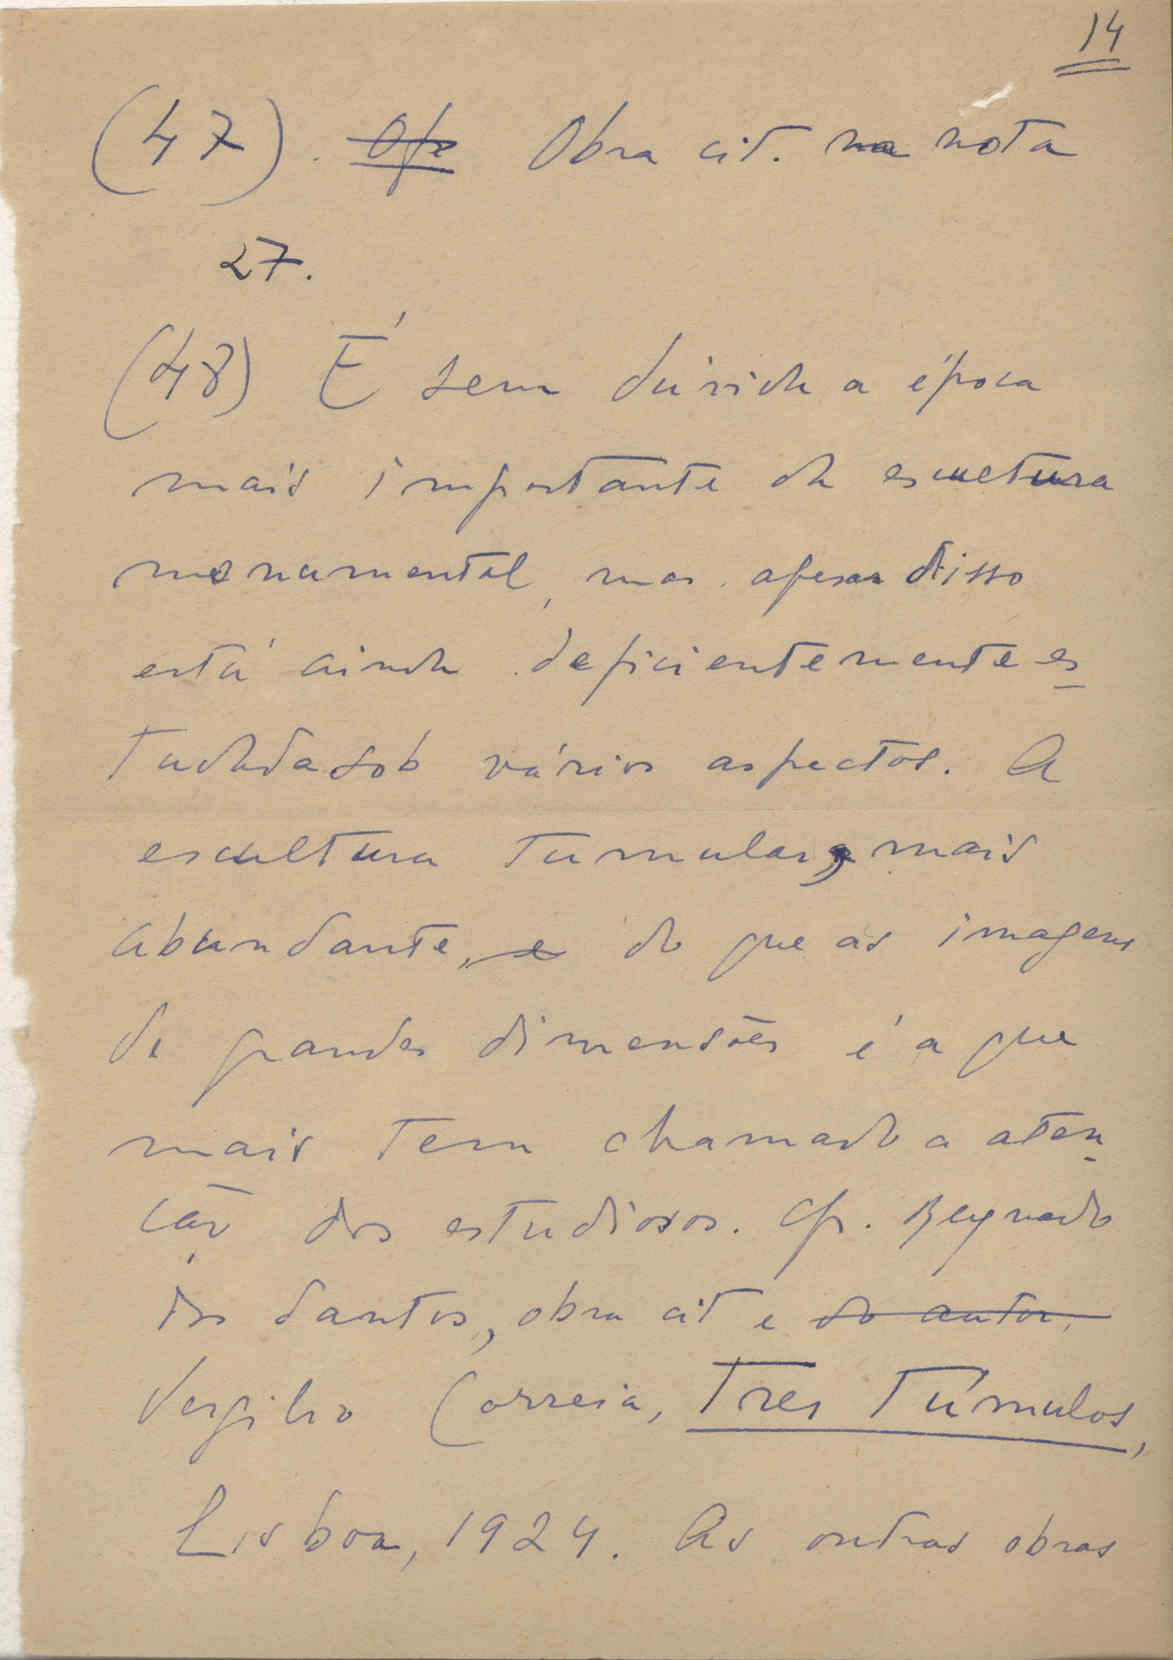 14
(47). Ofr Obra cit. na nota
27.
(48) É sem dúvida a época
mais importante da escultura
monumental, mas apesar disso
está ainda deficientemente es
tudada sob vários aspectos. A
escultura tumular, mais
abundante, e do que as imagens
de grandes dimensões é a que
mais tem chamado a aten
ção dos estudiosos. Cfr. Reynado
dos Santos, obra cit e do autor,
Vergilio Correia, Tres Túmulos,
Lisboa, 1924. As outras obras